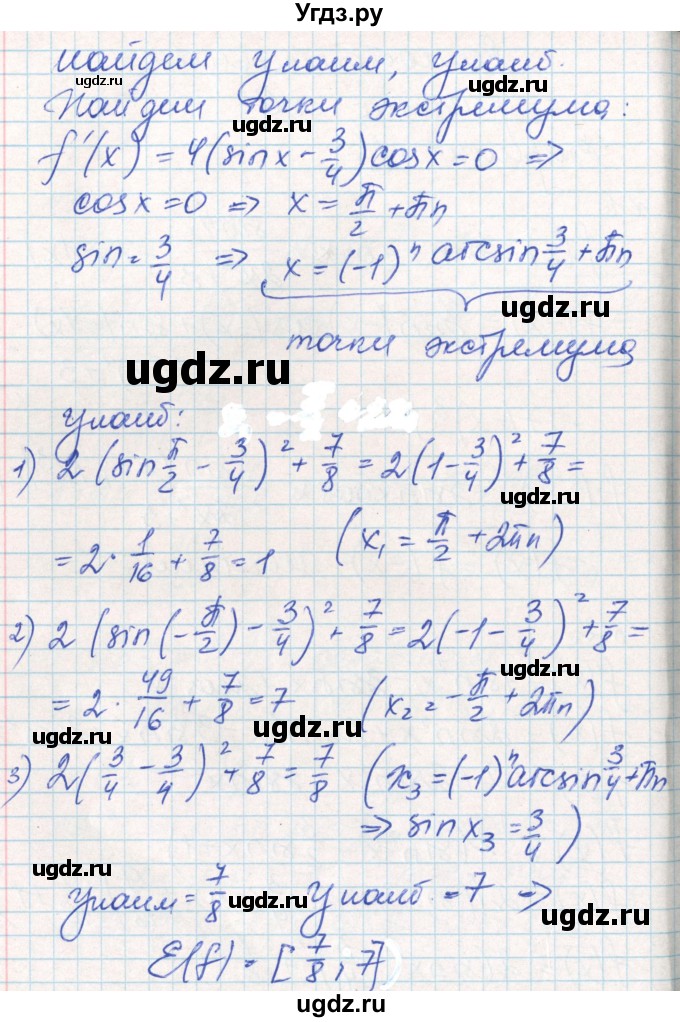 Угдз.ру
найдем Унаим, Унаиб.
ugdz.ru ugdz.ru
Найдем точки экстремума:
ugdz.ru
f'(x) = 4(sinx - 3/4)cosx = 0 =>
cosx = 0 => x = π/2 + πn
sin = 3/4 => x = (-1)ⁿ arcsin 3/4 + πn
ugdz.ru
точки экстремума
ugdz.ru
Унаиб:
1) 2(sin π/2 - 3/4)² + 7/8 = 2(1 - 3/4)² + 7/8 =
ugdz.ru
= 2 · 1/16 + 7/8 = 1 (x₁ = π/2 + 2πn)
ugdz.ru
2) 2(sin(-π/2) - 3/4)² + 7/8 = 2(-1 - 3/4)² + 7/8 =
ugdz.ru
= 2 · 49/16 + 7/8 = 7 (x₂ = -π/2 + 2πn)
ugdz.ru ugdz.ru
3) 2(3/4 - 3/4)² + 7/8 = 7/8 (x₃ = (-1)ⁿ arcsin 3/4 + πn
=> sin x₃ = 3/4)
ugdz.ru ugdz.ru
Унаим = 7/8 Унаиб = 7 =>
ugdz.ru ugdz.ru
E(f) = [7/8; 7]
ugdz.ru
ugdz.ru